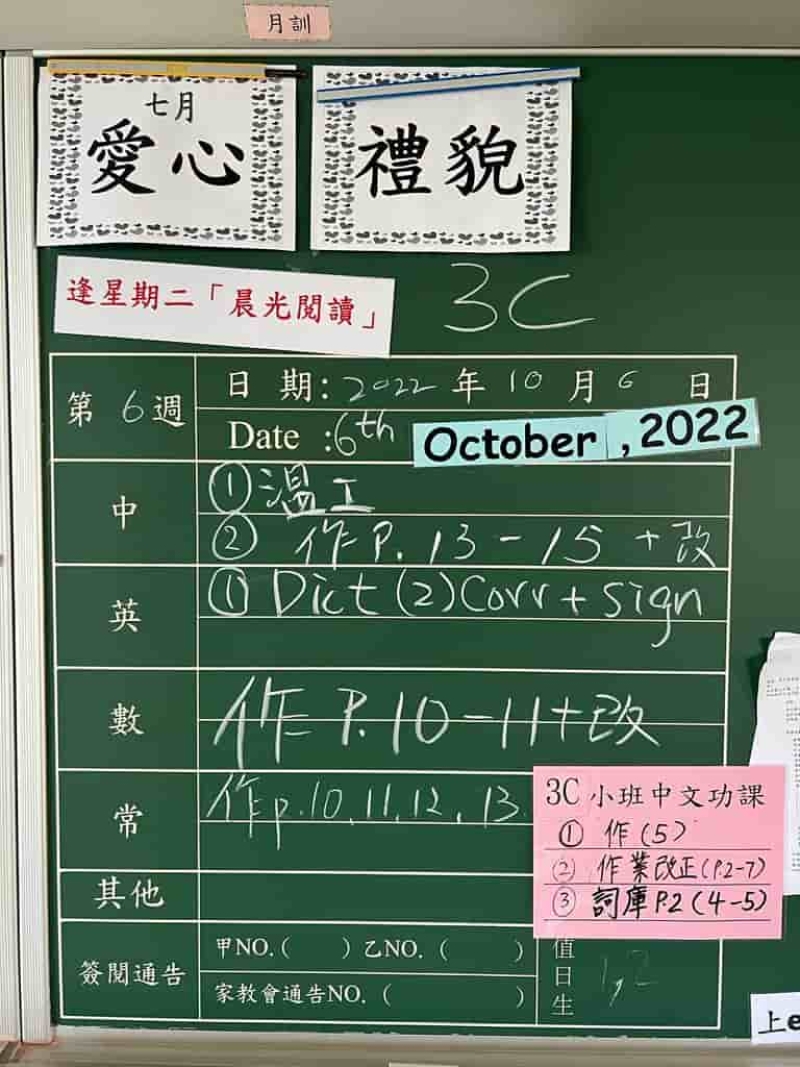 月訓
七月
愛心
禮貌
逢星期二「晨光閱讀」
3C
第 6 週
日 期: 2022 年 10 月 6 日
Date :6th October ,2022
中
① 溫工
② 作 P. 13 - 15 + 改
英
① Dict (2) Corr + sign
數
作 P. 10 - 11 + 改
常
作 p. 10, 11, 12, 13.
3C 小班中文功課
① 作 (5)
② 作業改正 (P.2-7)
③ 詞庫 P.2 (4-5)
其他
簽閱通告
甲NO.( ) 乙NO. ( )
家教會通告NO. ( )
值日生
1, 2
上e